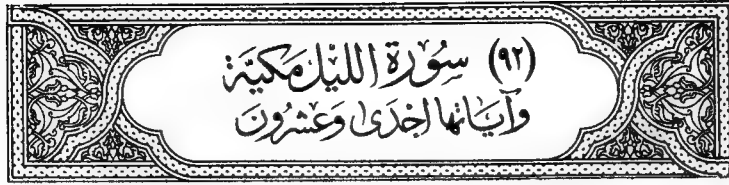 (٩٢) سُورَة اللَّيْل مَكيَّة
وَآيَاتُهَا إِحْدَىٰ وَعِشْرُونَ